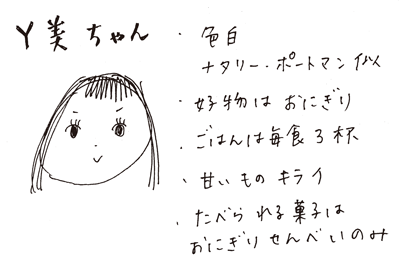 Y美ちゃん
・色白
ナタリー・ポートマン似
・好物は おにぎり
・ごはんは毎食3杯
・甘いもの キライ
・たべられる菓子は
おにぎりせんべいのみ